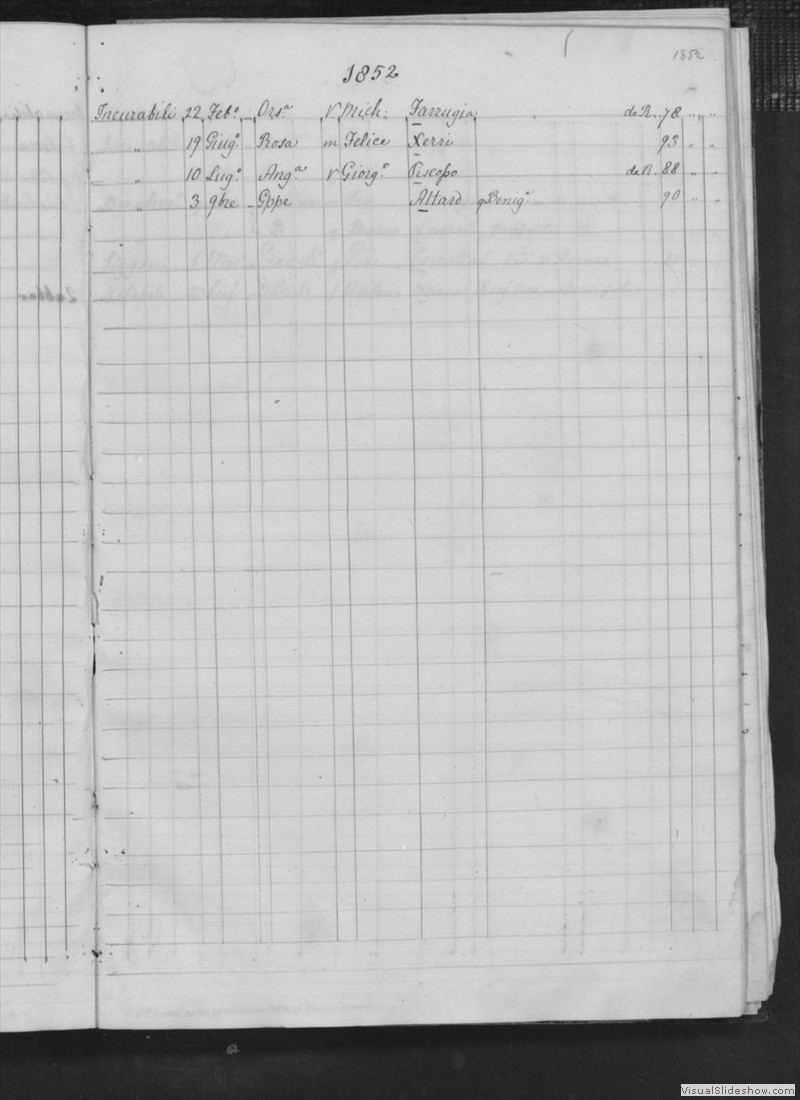 1852
1852
Incurabili 22 Feb.º Ors.ª V Mich: Farrugia de R. 78 „ „ „
„ 19 Giug.º Rosa m Felice Xerri 93 „ „
„ 10 Lug.º Ang.ª V Giorg.º Piscopo de R. 88 „ „
„ 3 9bre Gppe Attard q Benig.º 90 „ „
VisualSlideshow.com